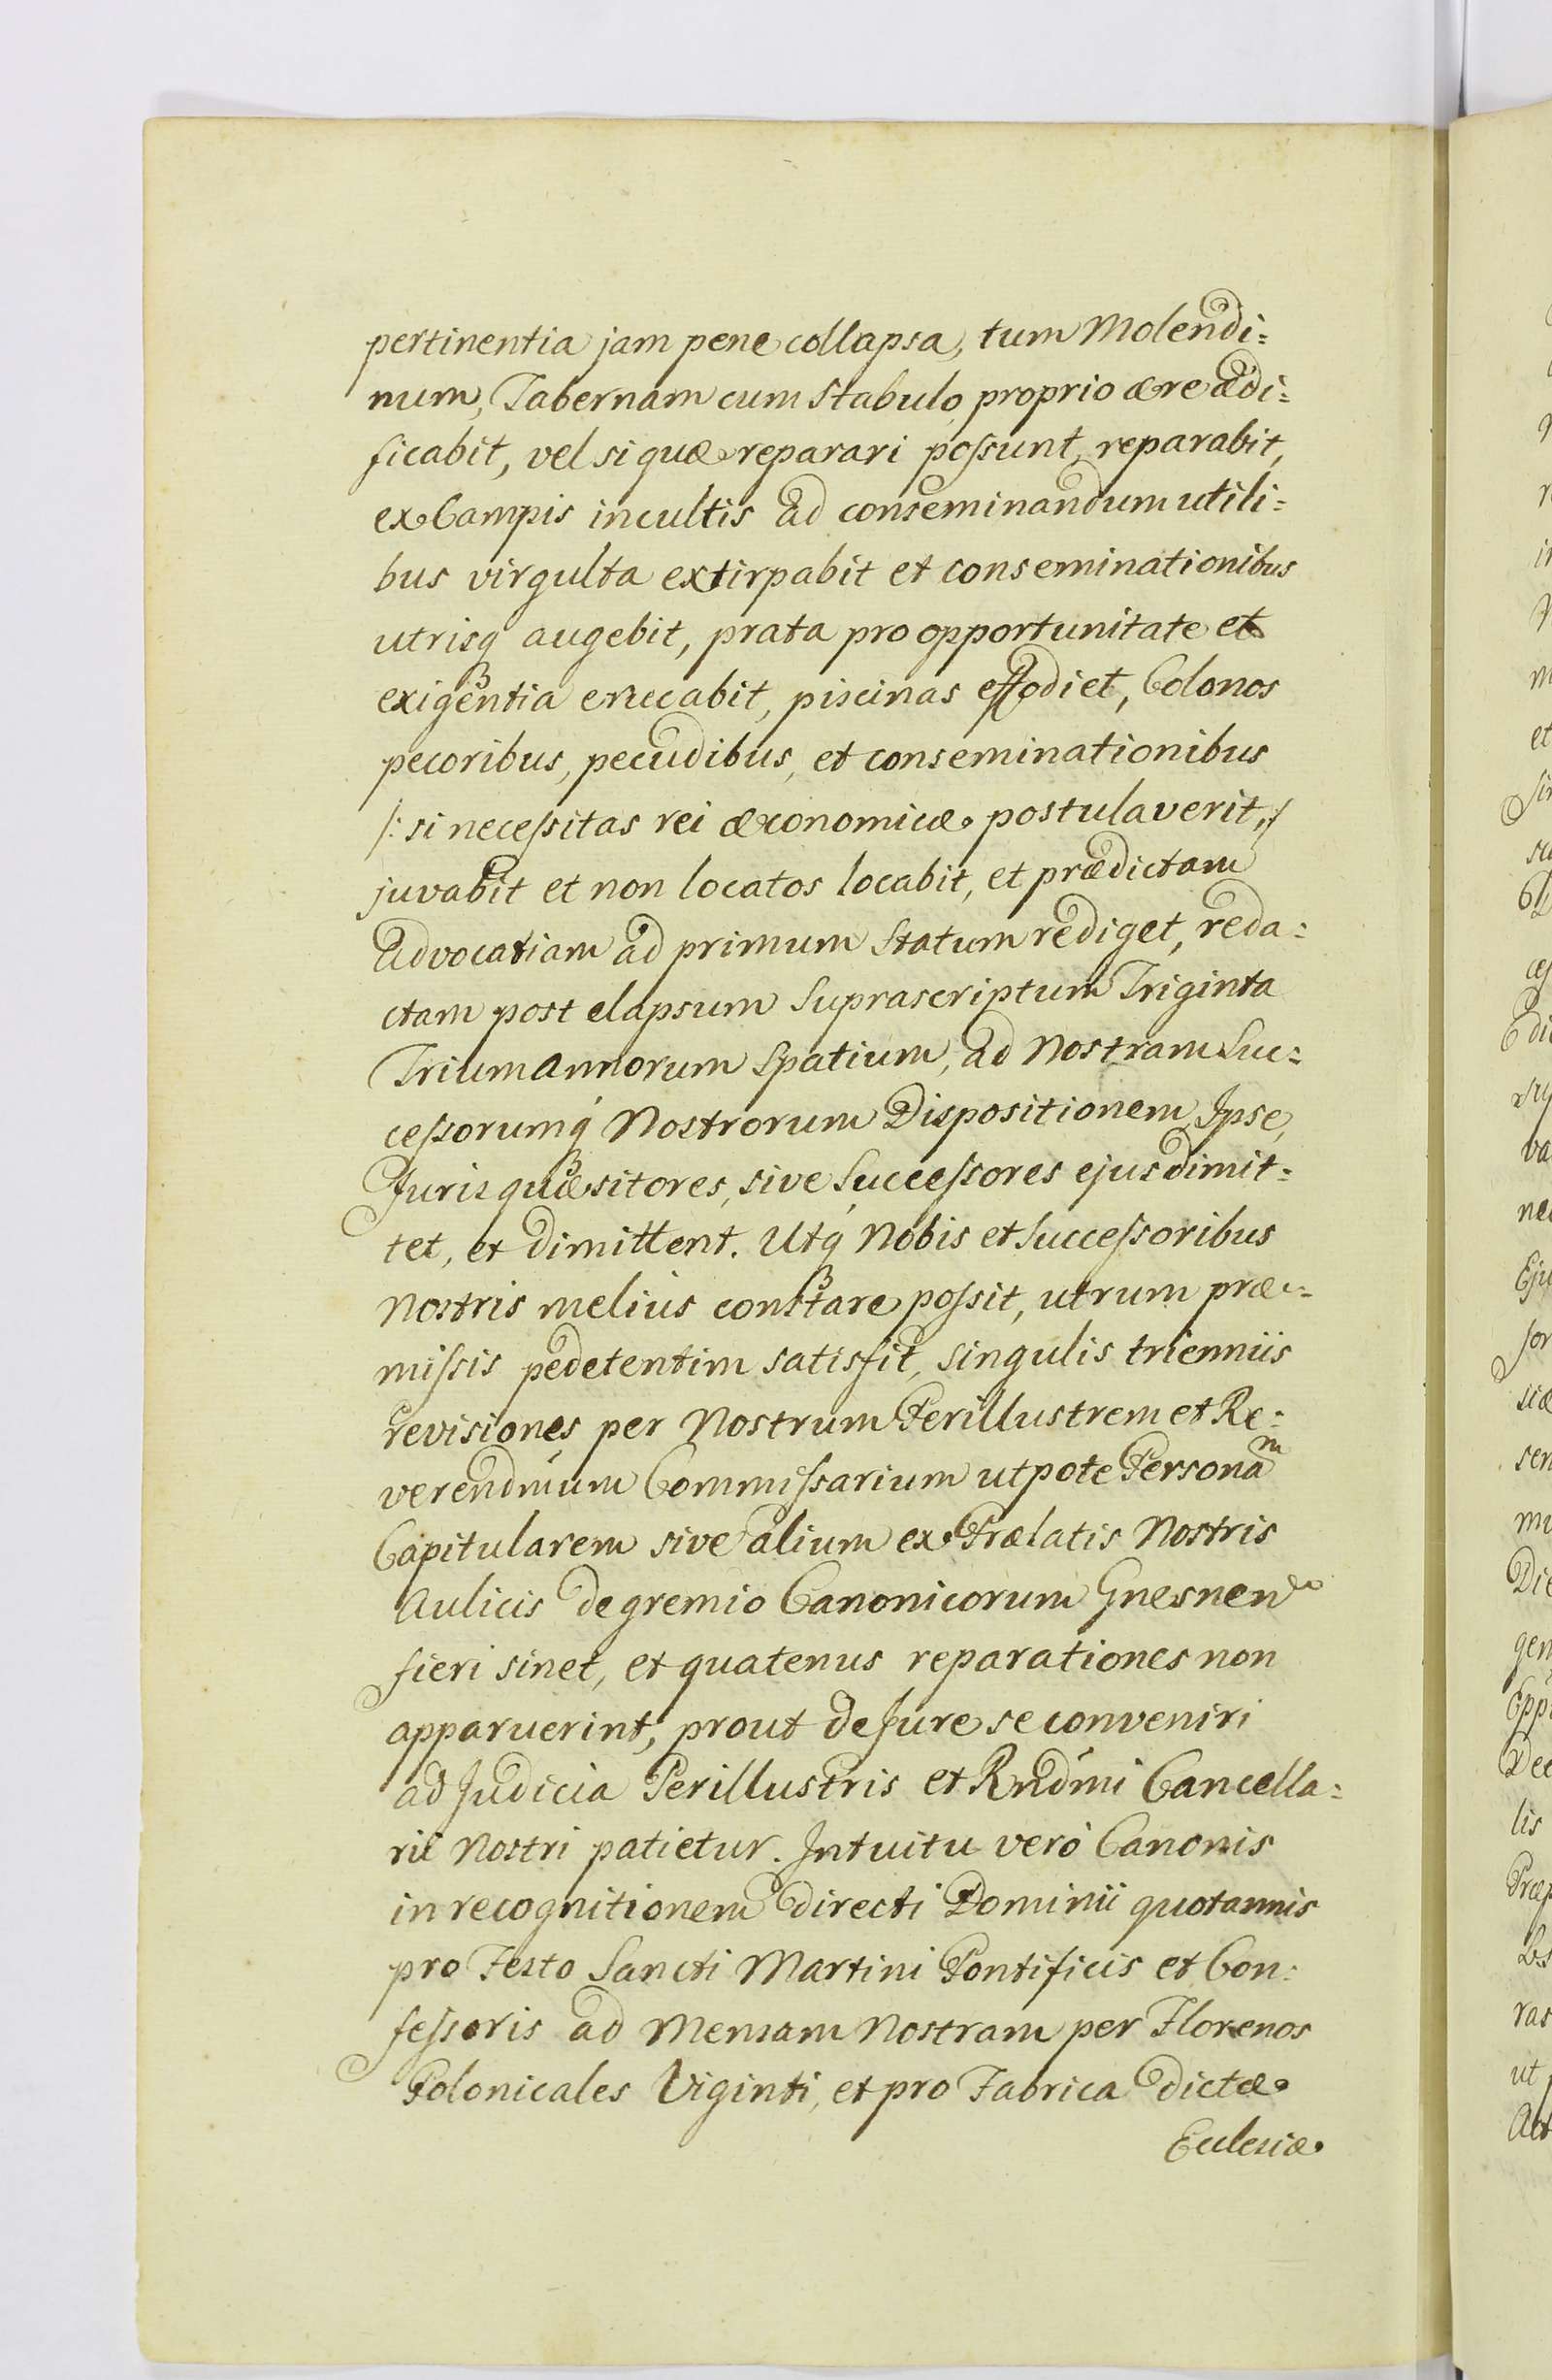 pertinentia jam pene collapsa, tum Molendi:
num, Tabernam cum stabulo proprio ære ædi:
ficabit, vel si quæ reparari possunt, reparabit,
ex Campis incultis ad conseminandum utili:
bus virgulta extirpabit et conseminationibus
utrisq́ augebit, prata pro opportunitate et
exigentia eruccabit, piscinas effodiet, Colonos
pecoribus, pecudibus, et conseminationibus
/: si necessitas rei æconomicæ postulaverit :/
juvabit et non locatos locabit, et prædictam
Advocatiam ad primum Statum rediget, reda:
ctam post elapsum Suprascriptum Triginta
Trium annorum Spatium, ad Nostram Suc:
cessorumq́ Nostrorum Dispositionem Ipse,
Juris quæsitores, sive Successores ejus dimit:
tet, et dimittent. Utq́ Nobis et Successoribus
Nostris melius constare possit, utrum præ:
missis pedetentim satisfit, singulis trienniis
revisiones per Nostrum Perillustrem et Re:
verendmum Commissarium utpote Personam
Capitularem sive alium ex Prælatis Nostris
Aulicis de gremio Canonicorum Gnesnen
fieri sinet, et quatenus reparationes non
apparuerint, prout de Jure se conveniri
ad Judicia Perillustris et Rndmi Cancella:
rii Nostri patietur. Intuitu verò Canonis
in recognitionem directi Dominii quotannis
pro Festo Sancti Martini Pontificis et Con:
fessoris ad Mensam Nostram per Florenos
Polonicales Viginti, et pro Fabrica dictæ
Ecclesiæ